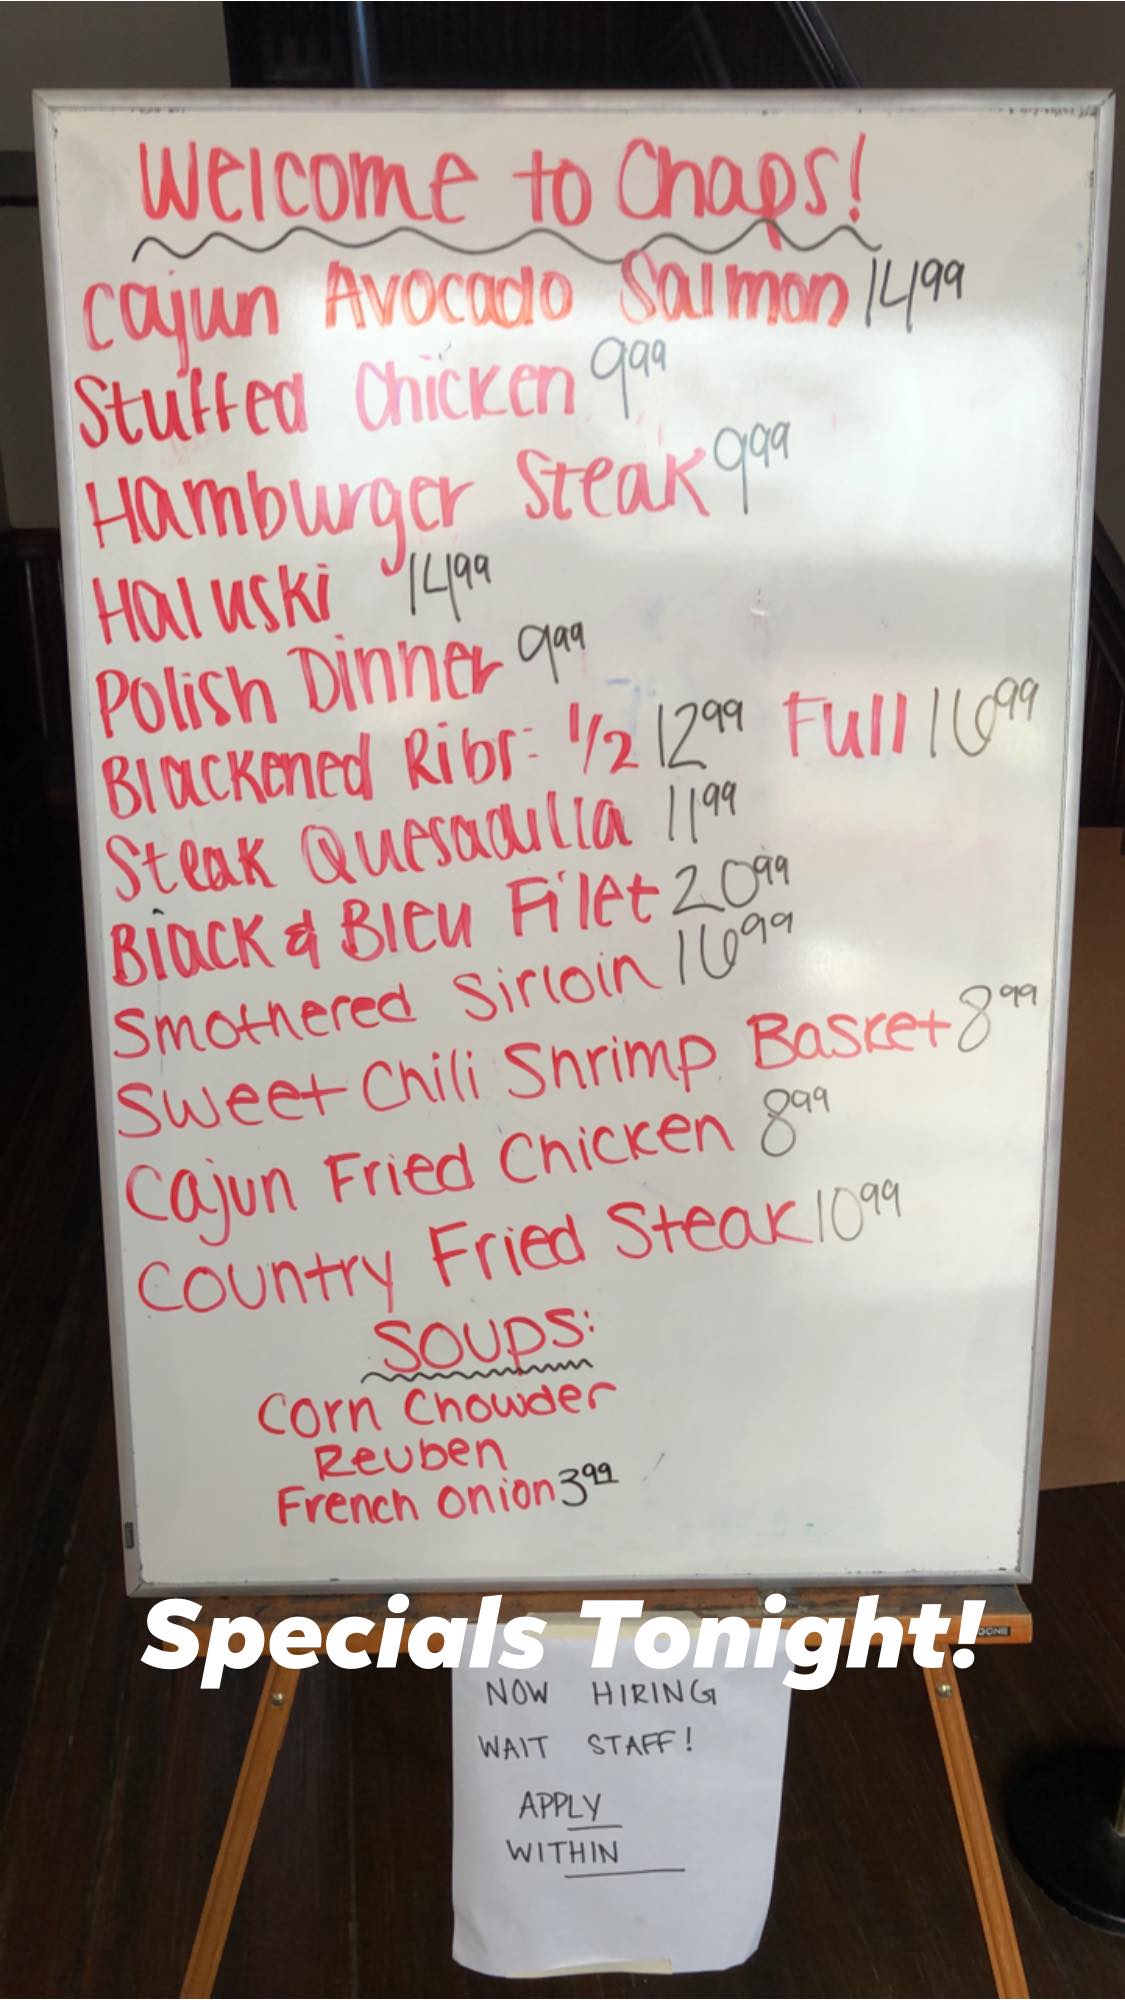 Welcome to Chaps!
Cajun Avocado Salmon 14 99
Stuffed Chicken 9 99
Hamburger Steak 9 99
Haluski 14 99
Polish Dinner 9 99
Blackened Ribs: 1/2 12 99 Full 16 99
Steak Quesadilla 11 99
Black & Bleu Filet 20 99
Smothered Sirloin 16 99
Sweet Chili Shrimp Basket 8 99
Cajun Fried Chicken 8 99
Country Fried Steak 10 99
SOUPS:
Corn Chowder
Reuben
French Onion 3 99
Specials Tonight!
NOW HIRING
WAIT STAFF!
APPLY
WITHIN